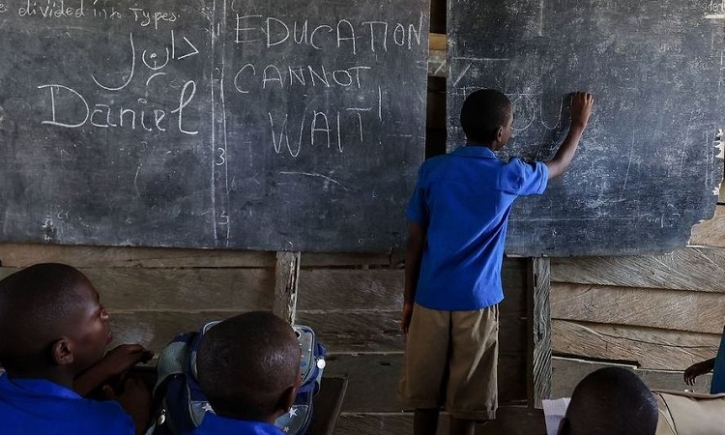 divided into Types.
دانيل
Daniel
EDUCATION
CANNOT
WAIT!
3
4